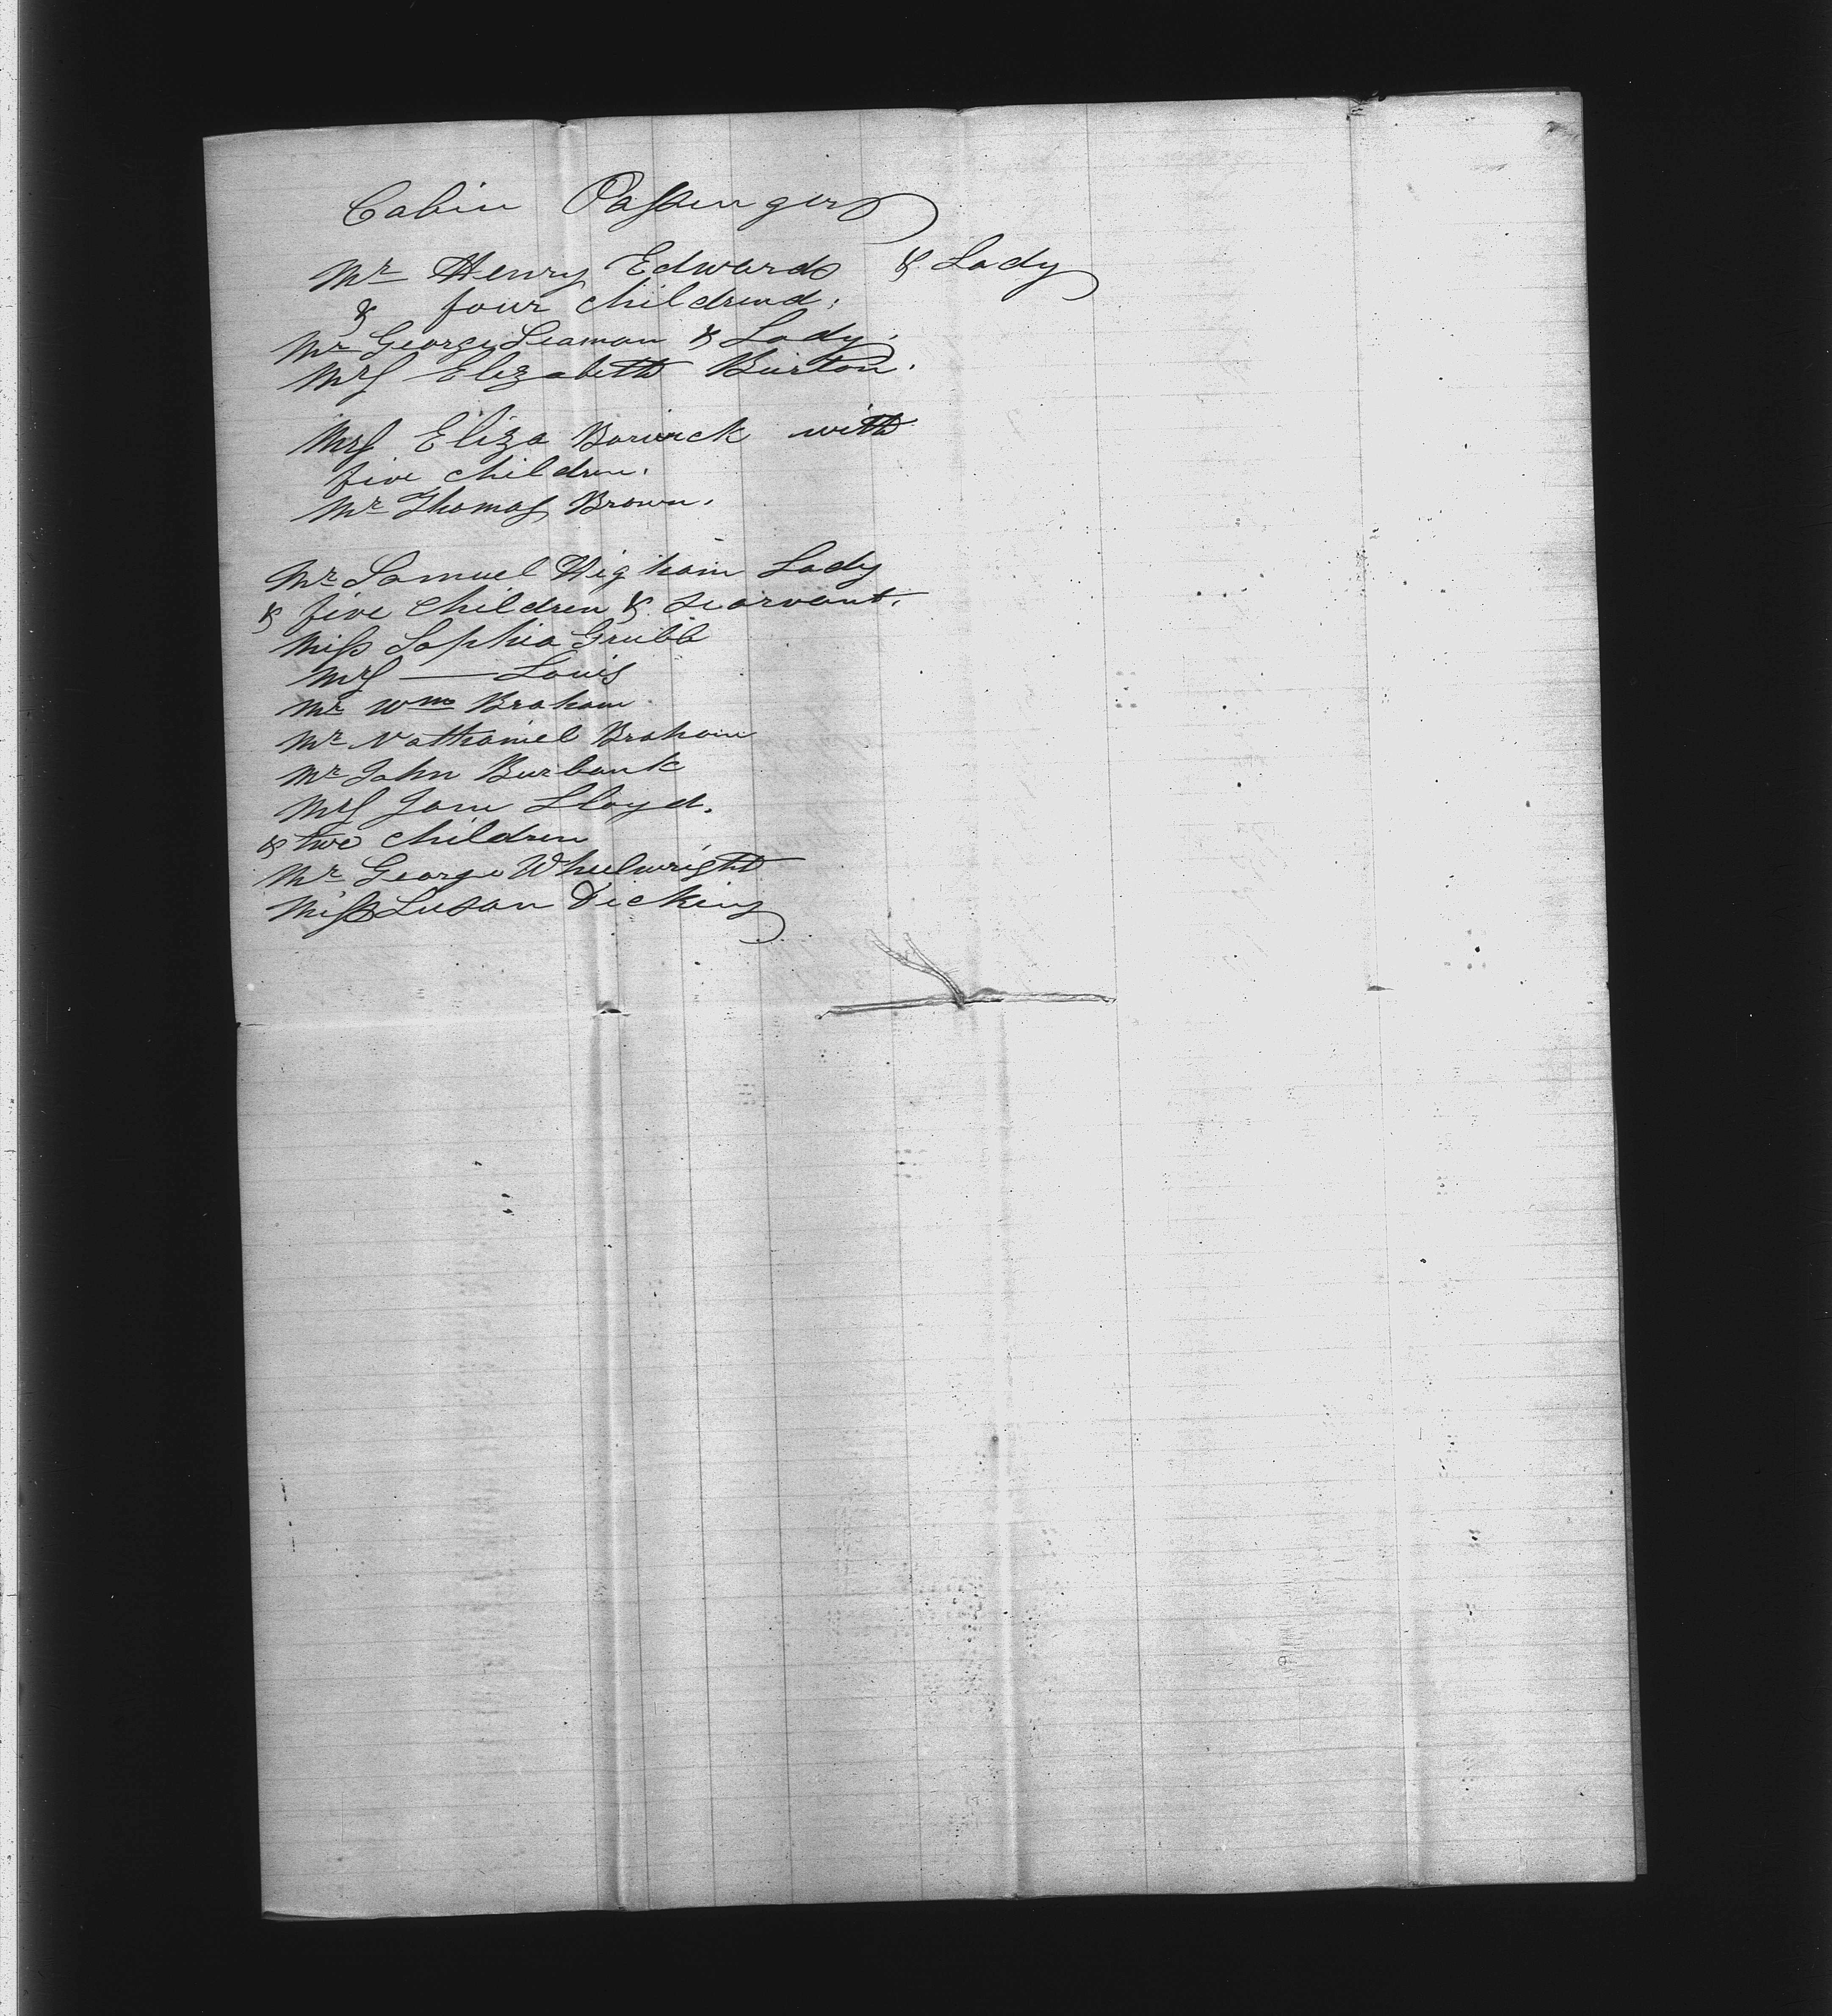 Cabin Passengers
Mr Henry Edwards & Lady
& four childrend.
Mr George Seaman & Lady.
Mrs Elizabeth Burton.
Mrs Eliza Borwick with
five children.
Mr Thomas Brown.
Mr Samuel Higham Lady
& five children & searvant.
Miss Sophia Grubb
Mrs — Louis
Mr Wm Braham
Mr Nathaniel Braham
Mr John Burbank
Mrs Jane Lloyd.
& two children
Mr George Wheelwright
Miss Susan Dickins